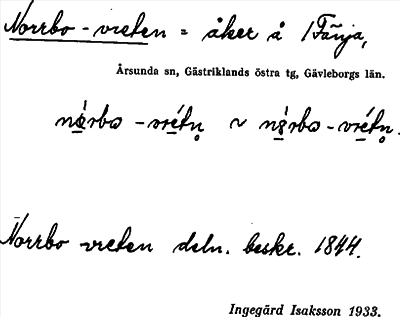 Norrbo-vreten = åker å Fänja,
Årsunda sn, Gästriklands östra tg, Gävleborgs län.
nọ̀rbo - vrétn̥ ~ nọ̀rbo - vrétn̥.
Norrbo vreten deln. beskr. 1844.
Ingegärd Isaksson 1933.